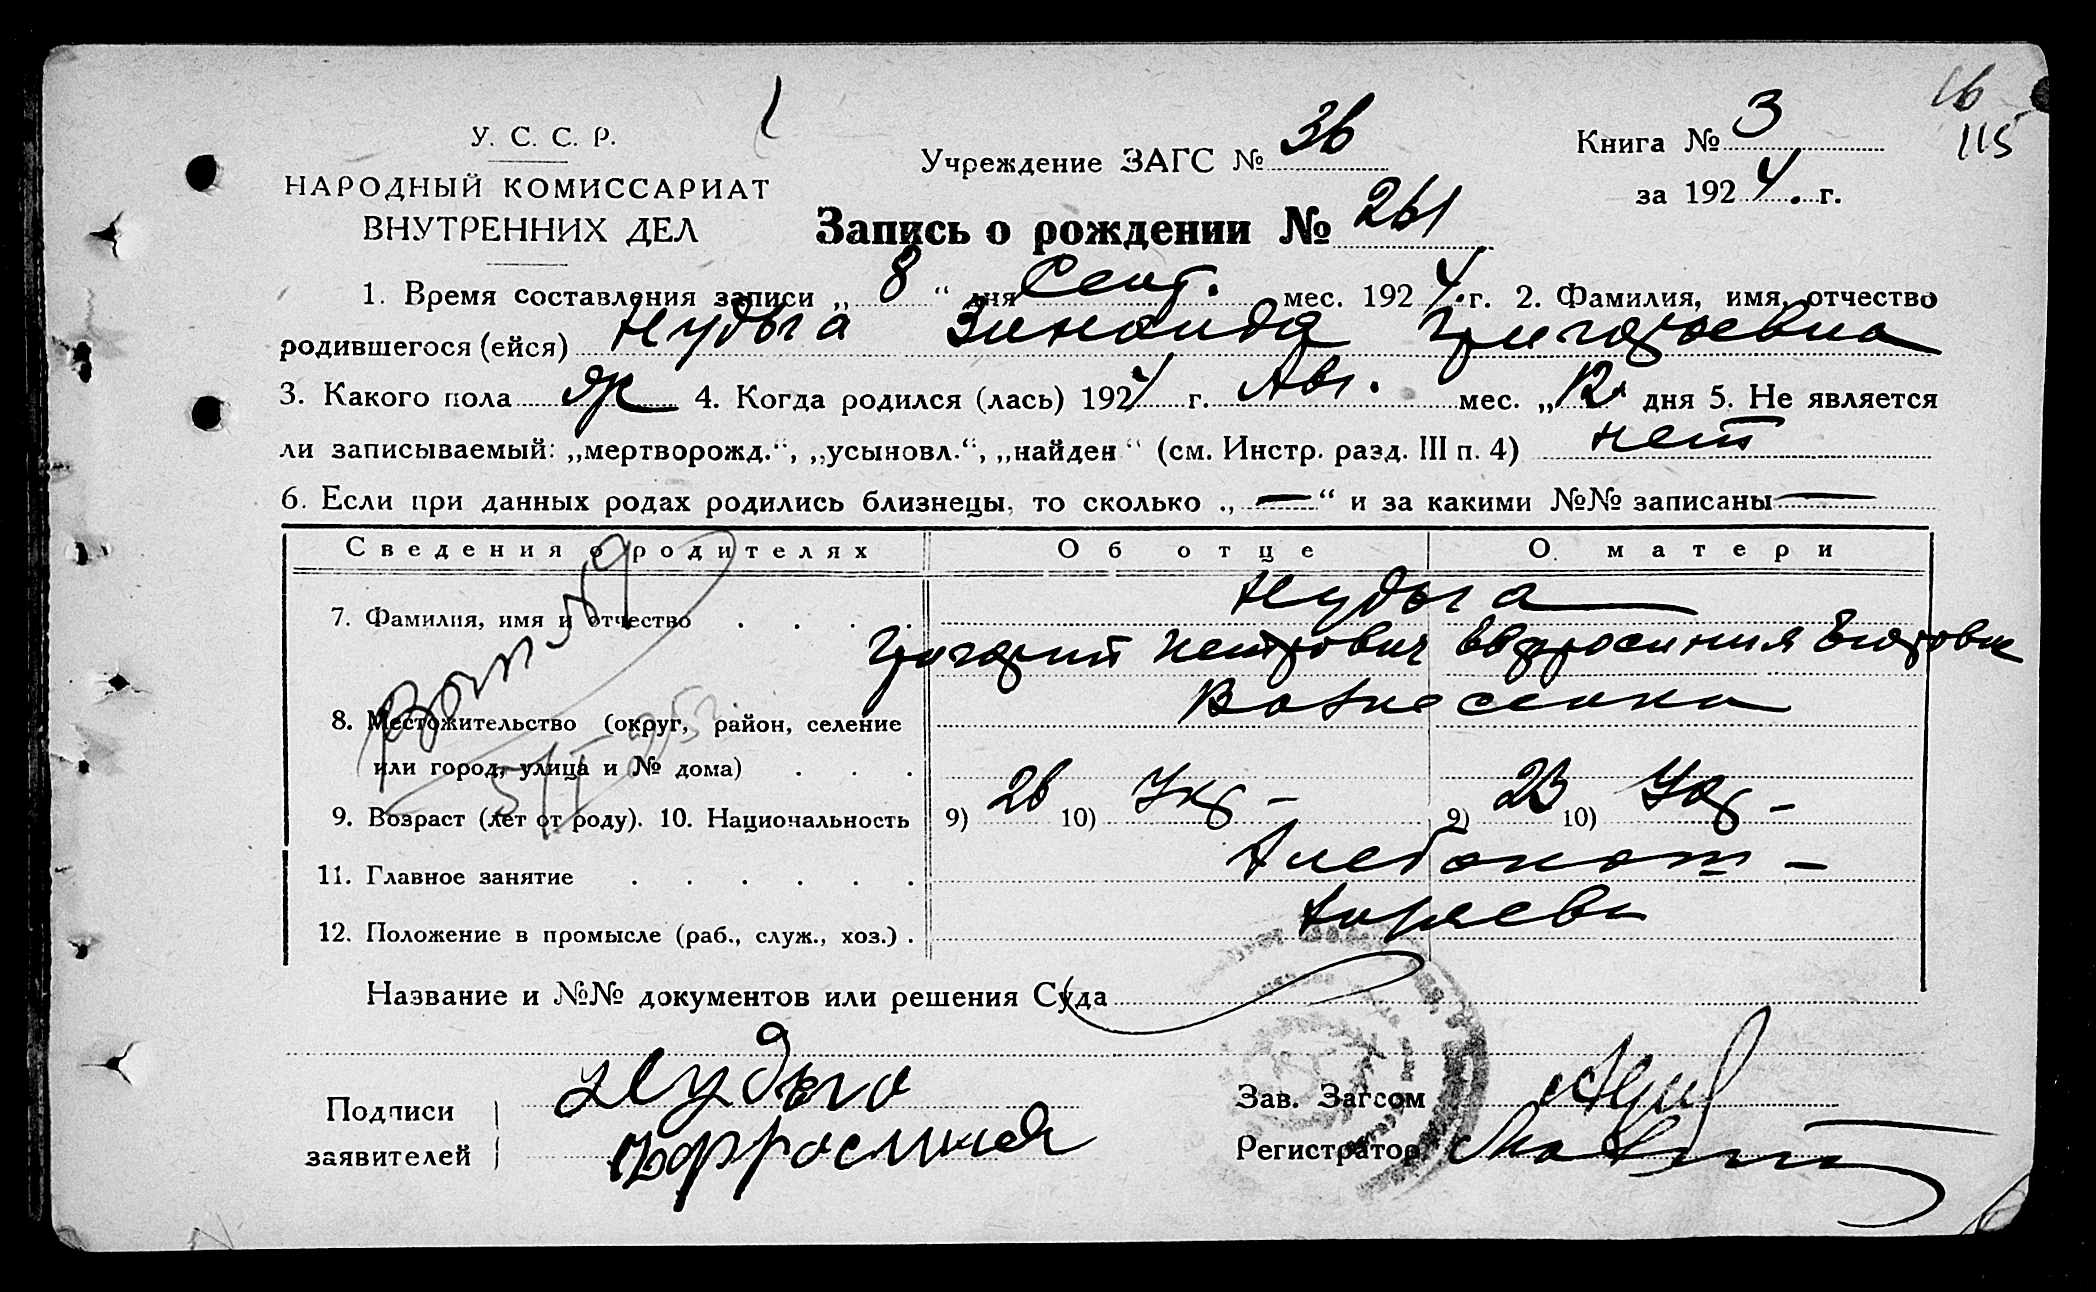 16
115
У. С. С. Р.
НАРОДНЫЙ КОМИССАРИАТ
ВНУТРЕННИХ ДЕЛ
Учреждение ЗАГС № 36
Книга № 3
за 1924 г.
Запись о рождении № 261
1. Время составления записи „ 8 “ дня Сент. мес. 1924 г. 2. Фамилия, имя, отчество
родившегося (ейся) Нудьга Зинаида Григорьевна
3. Какого пола ж 4. Когда родился (лась) 1924 г. Авг. мес. „ 12 дня 5. Не является
ли записываемый: „мертворожд.“, „усыновл.“, „найден“ (см. Инстр. разд. III п. 4) нет
6. Если при данных родах родились близнецы, то сколько „ — “ и за какими №№ записаны —
Сведения о родителях Об отце О матери
7. Фамилия, имя и отчество . . . . Нудьга
Григорий Петрович Евфросиния
8. Местожительство (округ, район, селение
или город, улица и № дома) . . .
Вознесенка
9. Возраст (лет от роду). 10. Национальность 9) 26 10) Укр - 9) 23 10) Укр -
11. Главное занятие . . . . . . Хлебопаш -
12. Положение в промысле (раб., служ., хоз.) .
Название и №№ документов или решения Суда
Подписи
заявителей
Нудьга
Ефросиния
Зав. Загсом
Регистратор